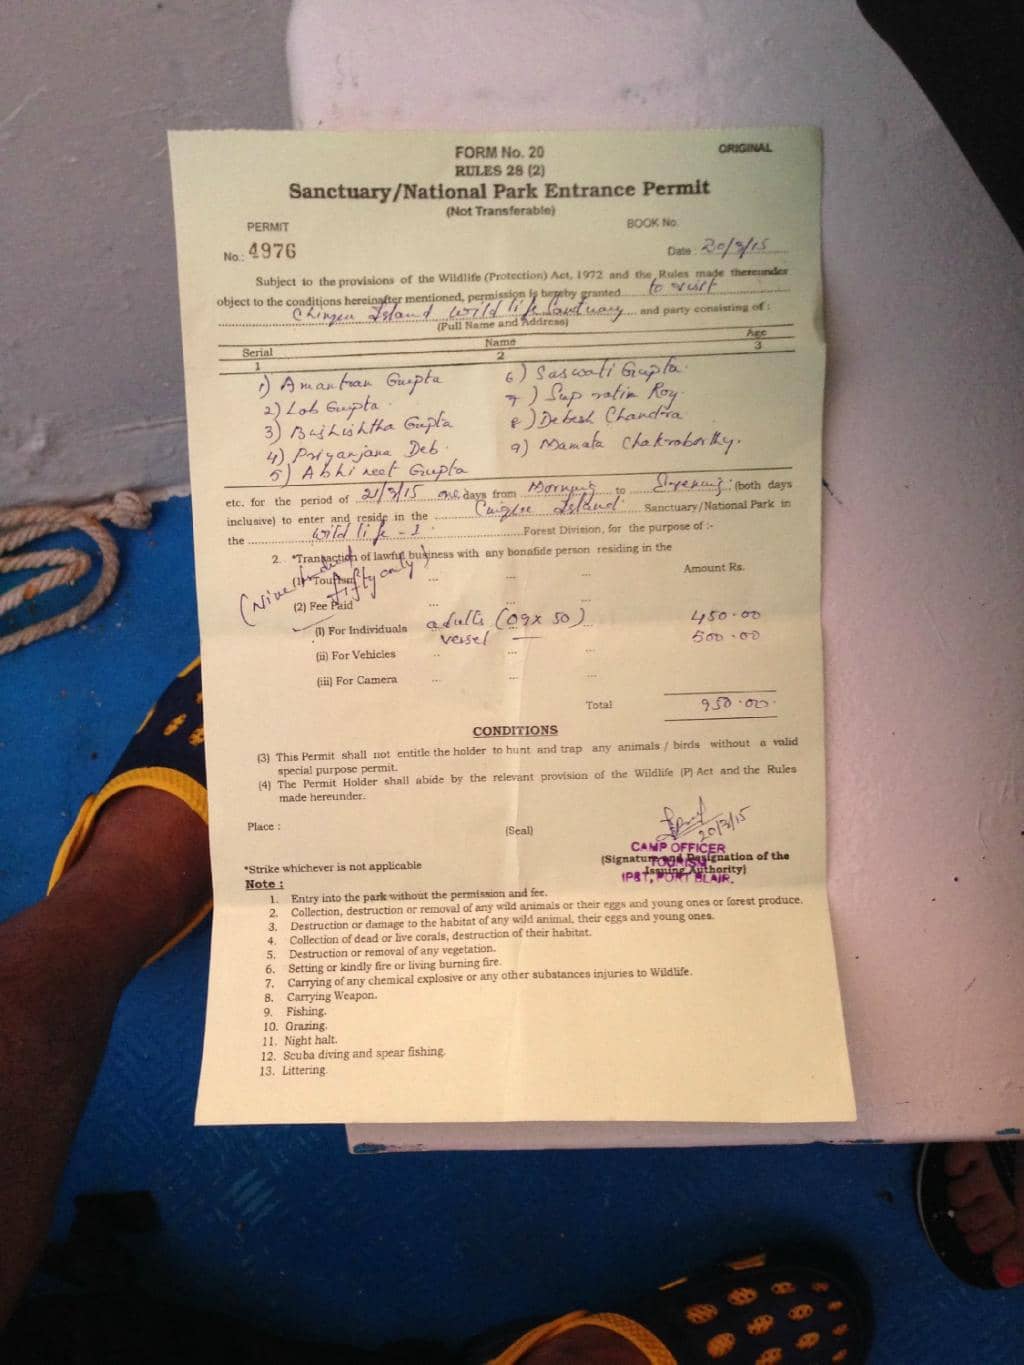 FORM No. 20
ORIGINAL
RULES 28 (2)
Sanctuary/National Park Entrance Permit
(Not Transferable)
PERMIT
BOOK No.
No.: 4976
Date 20/3/15
Subject to the provisions of the Wildlife (Protection) Act, 1972 and the Rules made thereunder
object to the conditions hereinafter mentioned, permission is hereby granted to visit
Island Wild life Sanctuary and party consisting of :
(Full Name and Address)
Serial Name Age
1 2 3
1) Amantran Gupta
2) Lob Gupta
3) Bashishtha Gupta
4) Priyanjana Deb.
5) Abhineet Gupta
6) Saswati Gupta.
7) Supratim Roy.
8) Debesh Chandra
9) Mamata Chakraborthy.
etc. for the period of 21/3/15 one days from Morning to (both days
inclusive) to enter and reside in the Island Sanctuary/National Park in
the wild life - 1 Forest Division, for the purpose of :-
2. *Transaction of lawful business with any bonafide person residing in the
(1) Tourism ... ... ...
Amount Rs.
(Nine hundred fifty only)
(2) Fee Paid ... ... ...
(i) For Individuals adults (09x 50) 450.00
vessel — 500.00
(ii) For Vehicles .. ... ...
(iii) For Camera ... ... ...
Total 950.00
CONDITIONS
(3) This Permit shall not entitle the holder to hunt and trap any animals / birds without a valid
special purpose permit.
(4) The Permit Holder shall abide by the relevant provision of the Wildlife (P) Act and the Rules
made hereunder.
Place :
(Seal)
20/3/15
CAMP OFFICER
TOURISM
IP&T, PORT BLAIR.
(Signature and Designation of the
Issuing Authority)
*Strike whichever is not applicable
Note :
1. Entry into the park without the permission and fee.
2. Collection, destruction or removal of any wild animals or their eggs and young ones or forest produce.
3. Destruction or damage to the habitat of any wild animal, their eggs and young ones.
4. Collection of dead or live corals, destruction of their habitat.
5. Destruction or removal of any vegetation.
6. Setting or kindly fire or living burning fire.
7. Carrying of any chemical explosive or any other substances injuries to Wildlife.
8. Carrying Weapon.
9. Fishing.
10. Grazing.
11. Night halt.
12. Scuba diving and spear fishing.
13. Littering.